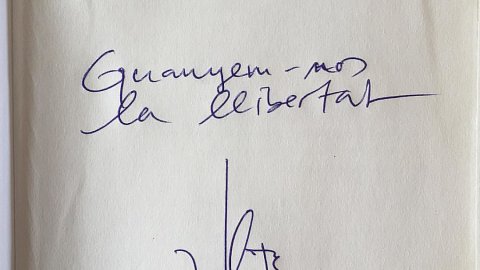 Guanyem-nos
la llibertat